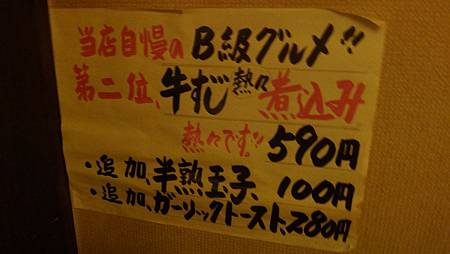 当店自慢のB級グルメ!!
第二位、牛すじ熱々煮込み
熱々です!! 590円
・追加、半熟玉子、100円
・追加、ガーリックトースト、280円